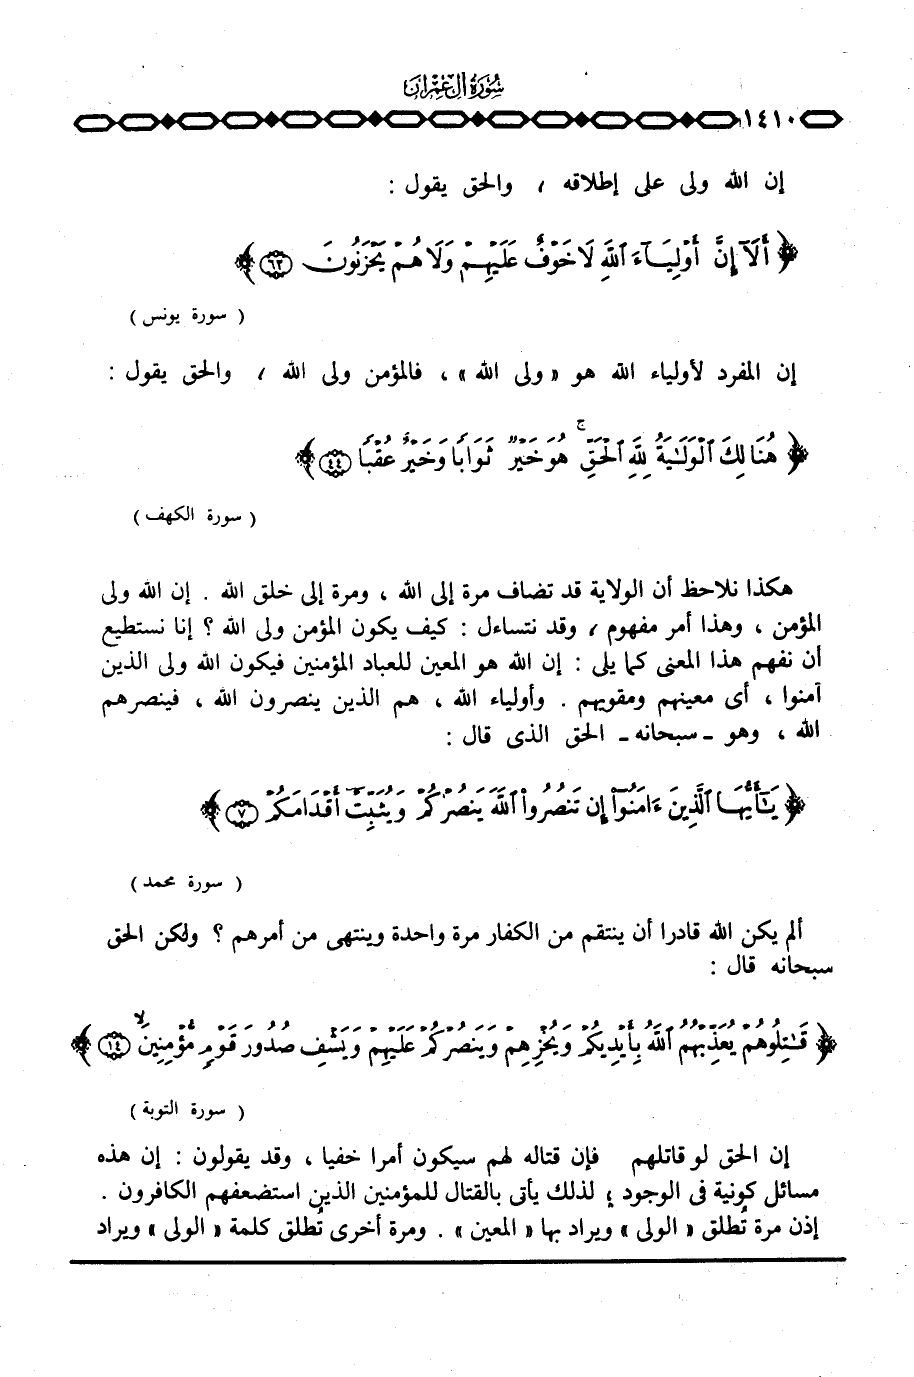 سورة آل عمران
١٤١٠
إن الله ولى على إطلاقه ، والحق يقول :
﴿ أَلَآ إِنَّ أَوْلِيَآءَ ٱللَّهِ لَا خَوْفٌ عَلَيْهِمْ وَلَا هُمْ يَحْزَنُونَ ٦٢ ﴾
( سورة يونس )
إن المفرد لأولياء الله هو « ولى الله » ، فالمؤمن ولى الله ، والحق يقول :
﴿ هُنَالِكَ ٱلْوَلَٰيَةُ لِلَّهِ ٱلْحَقِّ ۚ هُوَ خَيْرٌ ثَوَابًا وَخَيْرٌ عُقْبًا ٤٤ ﴾
( سورة الكهف )
هكذا نلاحظ أن الولاية قد تضاف مرة إلى الله ، ومرة إلى خلق الله . إن الله ولى
المؤمن ، وهذا أمر مفهوم ، وقد نتساءل : كيف يكون المؤمن ولى الله ؟ إنا نستطيع
أن نفهم هذا المعنى كما يلى : إن الله هو المعين للعباد المؤمنين فيكون الله ولى الذين
آمنوا ، أى معينهم ومقويهم . وأولياء الله ، هم الذين ينصرون الله ، فينصرهم
الله ، وهو ـ سبحانه ـ الحق الذى قال :
﴿ يَٰٓأَيُّهَا ٱلَّذِينَ ءَامَنُوٓا۟ إِن تَنصُرُوا۟ ٱللَّهَ يَنصُرْكُمْ وَيُثَبِّتْ أَقْدَامَكُمْ ٧ ﴾
( سورة محمد )
ألم يكن الله قادرا أن ينتقم من الكفار مرة واحدة وينتهى من أمرهم ؟ ولكن الحق
سبحانه قال :
﴿ قَٰتِلُوهُمْ يُعَذِّبْهُمُ ٱللَّهُ بِأَيْدِيكُمْ وَيُخْزِهِمْ وَيَنصُرْكُمْ عَلَيْهِمْ وَيَشْفِ صُدُورَ قَوْمٍ مُّؤْمِنِينَ ۙ ١٤ ﴾
( سورة التوبة )
إن الحق لو قاتلهم فإن قتاله لهم سيكون أمرا خفيا ، وقد يقولون : إن هذه
مسائل كونية فى الوجود ؛ لذلك يأتى بالقتال للمؤمنين الذين استضعفهم الكافرون .
إذن مرة تُطلق « الولى » ويراد بها « المعين » . ومرة أخرى تُطلق كلمة « الولى » ويراد